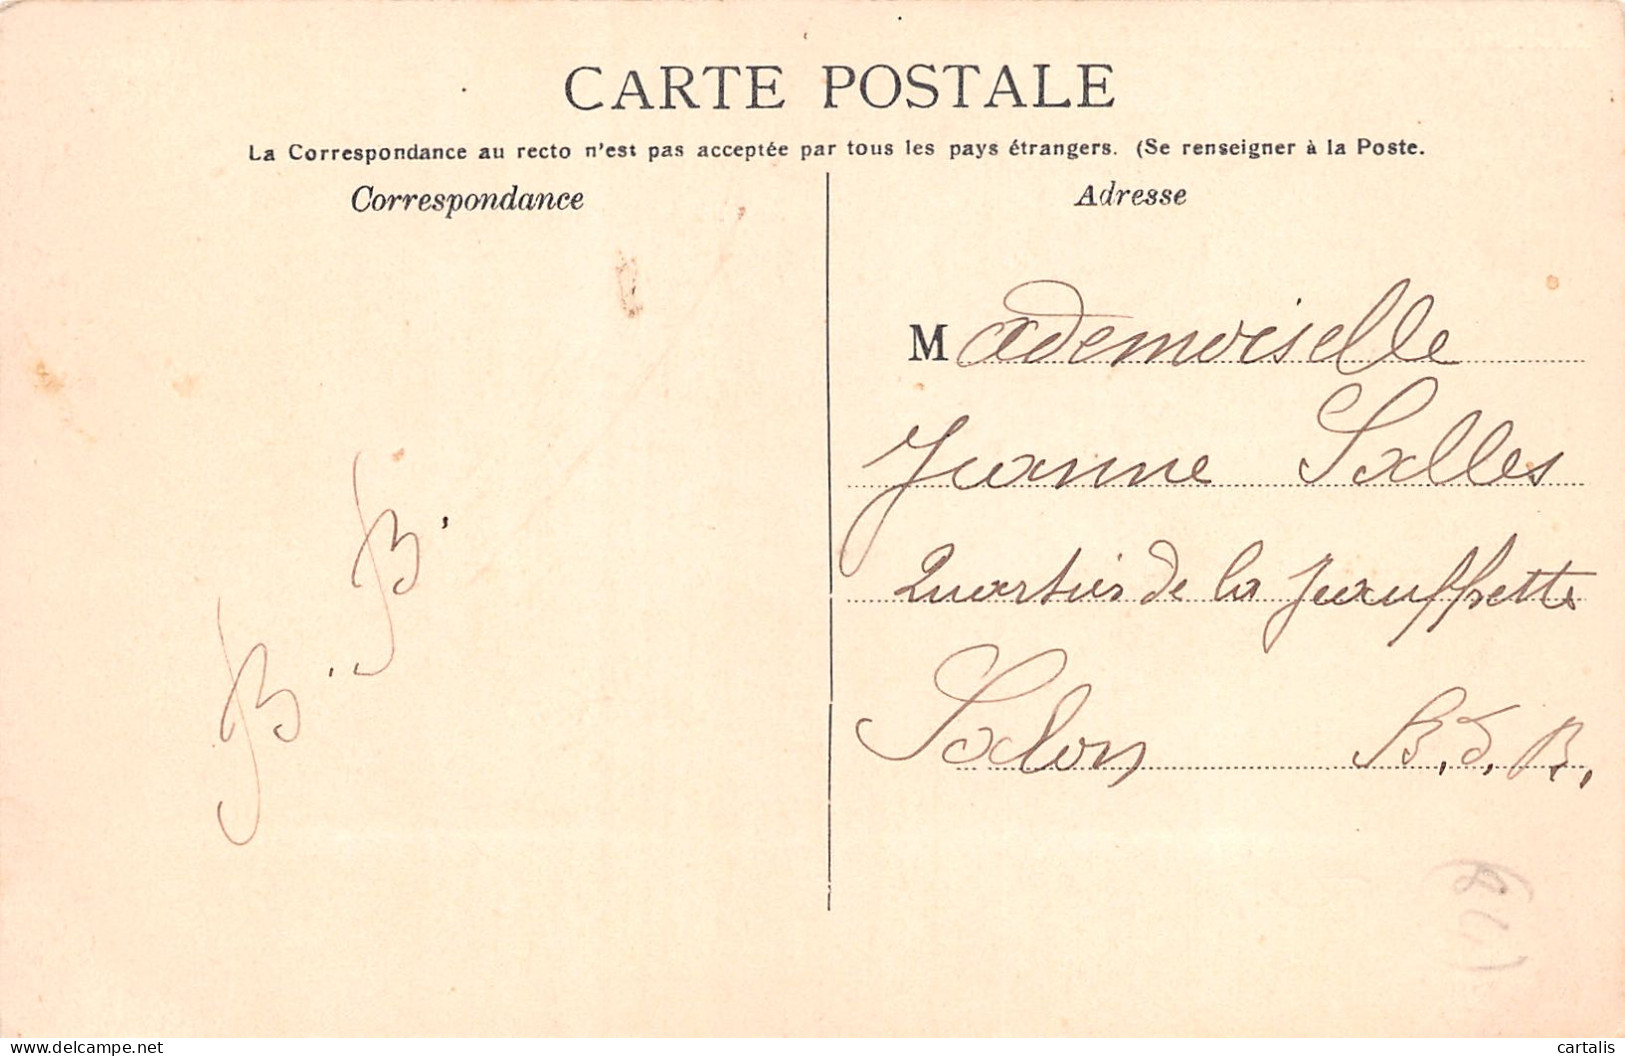 CARTE POSTALE
La Correspondance au recto n'est pas acceptée par tous les pays étrangers. (Se renseigner à la Poste.
Correspondance
Adresse
Mademoiselle
Jeanne Salles
Quartier de la Jauffrette
Salon B. d. R.
B. B.
www.delcampe.net
cartalis